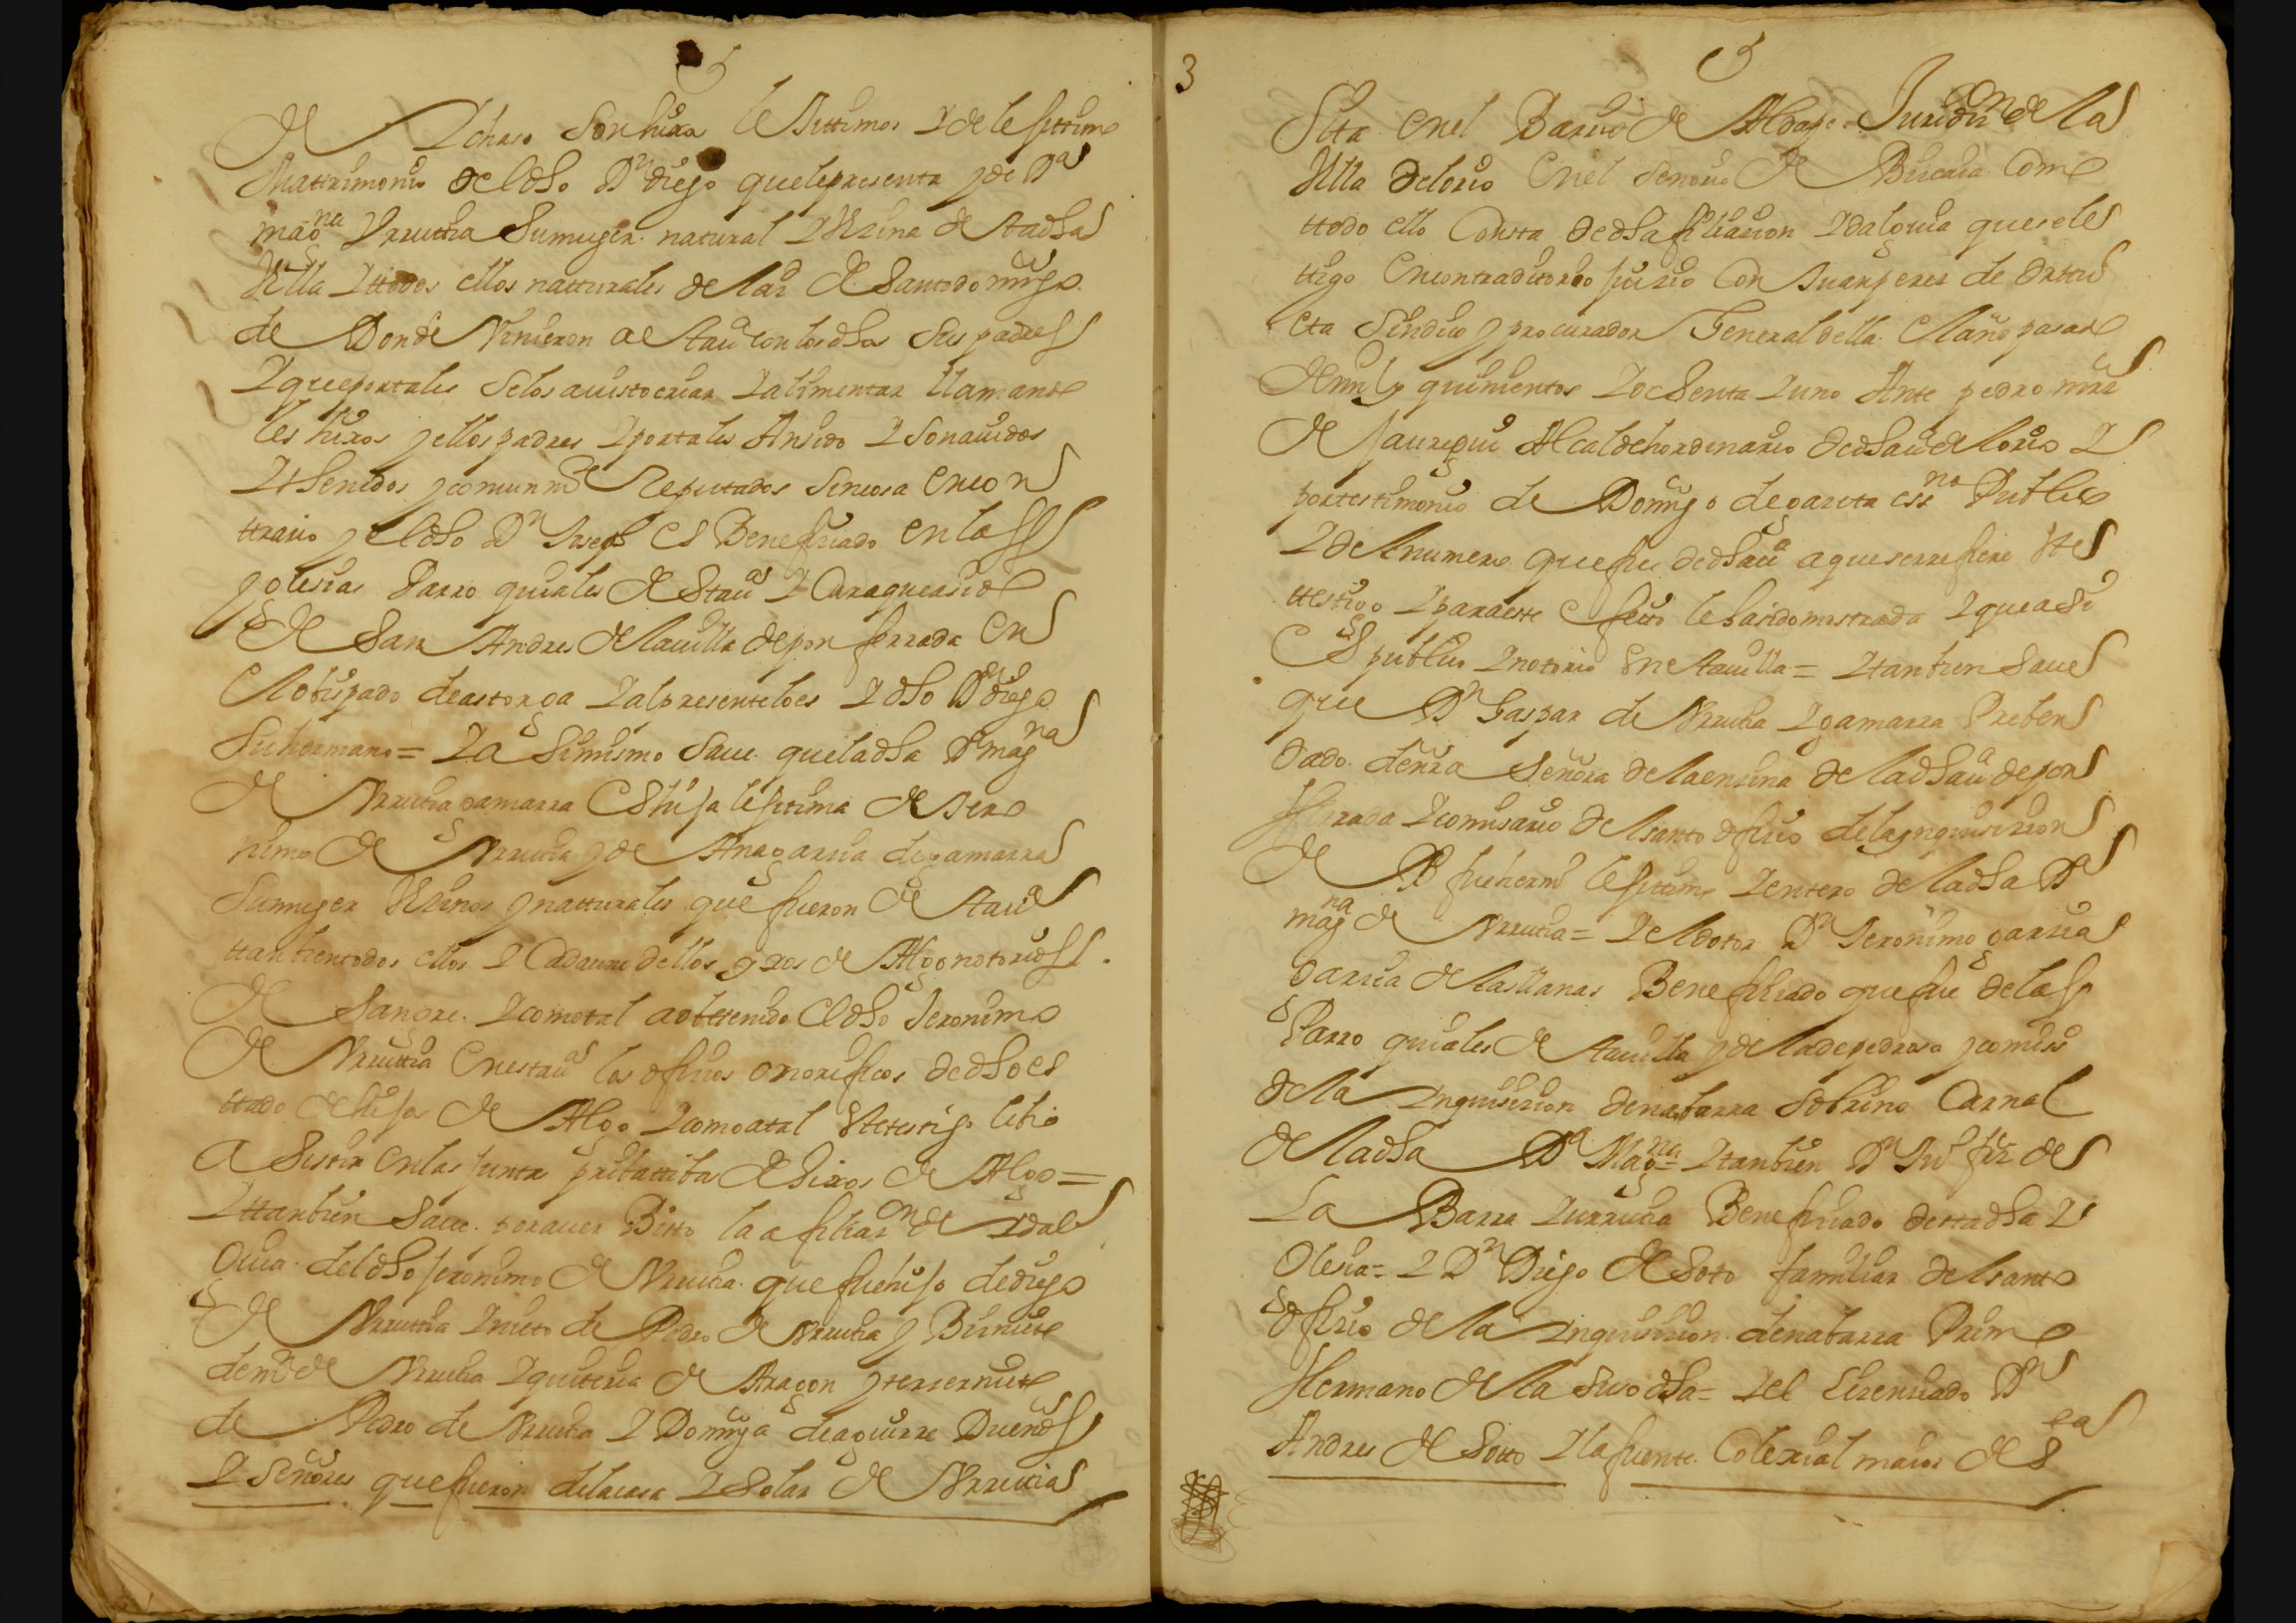 de Y charo son hixos lexittimos Y de lexittimo
Mattrimonio del dho Dn diego que le presenta y de Da
magna Vrruttia su muger natural Y Vezina desta dha
Villa Y ttodos ellos natturales de la Z de Santo domingo
de Donde Vinieron a esta Va con los dhos sus padres
Y que por tales se los a visto criar Y alimentar llamando
les hixos y ellos padres Y por tales An sido Y son auidos
Y thenidos y comunmte Reputados sin cosa en con
ttrario y el dho Dn Joseph es Benefiziado en las
Yglesias Parroquiales de esta Va Y
de San Andres de la uilla de ponferrada en
el obispado de astorga Y al presente lo es Y dho Dn diego
su hermano = Y a simismo saue que la dha Da magna
de Vrrutia gamarra es hija lexitima de Jero
nimo de Vrrutia y de Ana garzia de gamarra
su muger Vezinos y natturales que fueron de esta Va
tanbien todos ellos Y Cada uno dellos hixos de Algo notorios
de Sangre. Y como tal a obttenido el dho Jeronimo
de Vrruttia en esta Va los ofizios onorificos de dho es
ttado de hijos de Algo Y como a tal este testigo le bio
A sistir en las juntas pribattibas de hixos de Algo =
Y ttanbien saue por auer Bisto la a filiazon de Ydal
guia del dho jeronimo de Vrrutia que fue hijo de diego
de Vrruttia Y nieto de Pedro de Vrrutia y Bisnieto
de mn de Vrrutia Y quiteria de Aragon y terzer nieto
de Pedro de Vrrutia Y Dominga de aguirre Dueños
Y señores que fueron de la casa Y Solar de Vrrutia
3
Sita en el Barrio de Aldape Juridizon de la
Villa de lorio en el señorio de Bizcaia como
ttodo ello Consta de dha filiazion Ydalguia que se le
ttigo en contraditorio juizio con Juan perez de
eta Sindico y procurador General della el año pasado
de mill y quinientos Y ochenta Y uno Ante pedro mrz
de jauregui Alcalde hordinario de dha Va de lorio Y
por testimonio de Domingo de garita essno Publico
Y del numero que fue de dha Va a que se rrefiere este
ttestigo Y para este efecto le ha sido mostrada Y que asi
es publico Y notorio en esta uilla = Y tanbien saue
que Dn Gaspar de Vrrutia Y gamarra Preben
dado de nra Señora de la enzina de la dha Va de pon
ferrada Y comisario del santo ofizio de la ynquisizion
de Vd fue hermo lexitimo Y entero de la dha Da
magna de Vrrutia = Y el dotor Dn Jeronimo garzia
garzia de llas llanas Benefiziado que fue de las
Parroquiales de esta uilla y de la de pedroso y comiso
de la Ynquisizion de nabarra Sobrino Carnal
de la dha Da Magna = Y tanbien Dn Ju frz de
La Barra Y urrutia Benefiziado desta dha Y
glesia = Y Dn Diego de Soto familiar del santo
ofizio de la ynquisizion de nabarra Primo
Hermano de la suso dha = Y el lizenziado Dn
Andres de Sotto Y la fuente Colexial maior de S